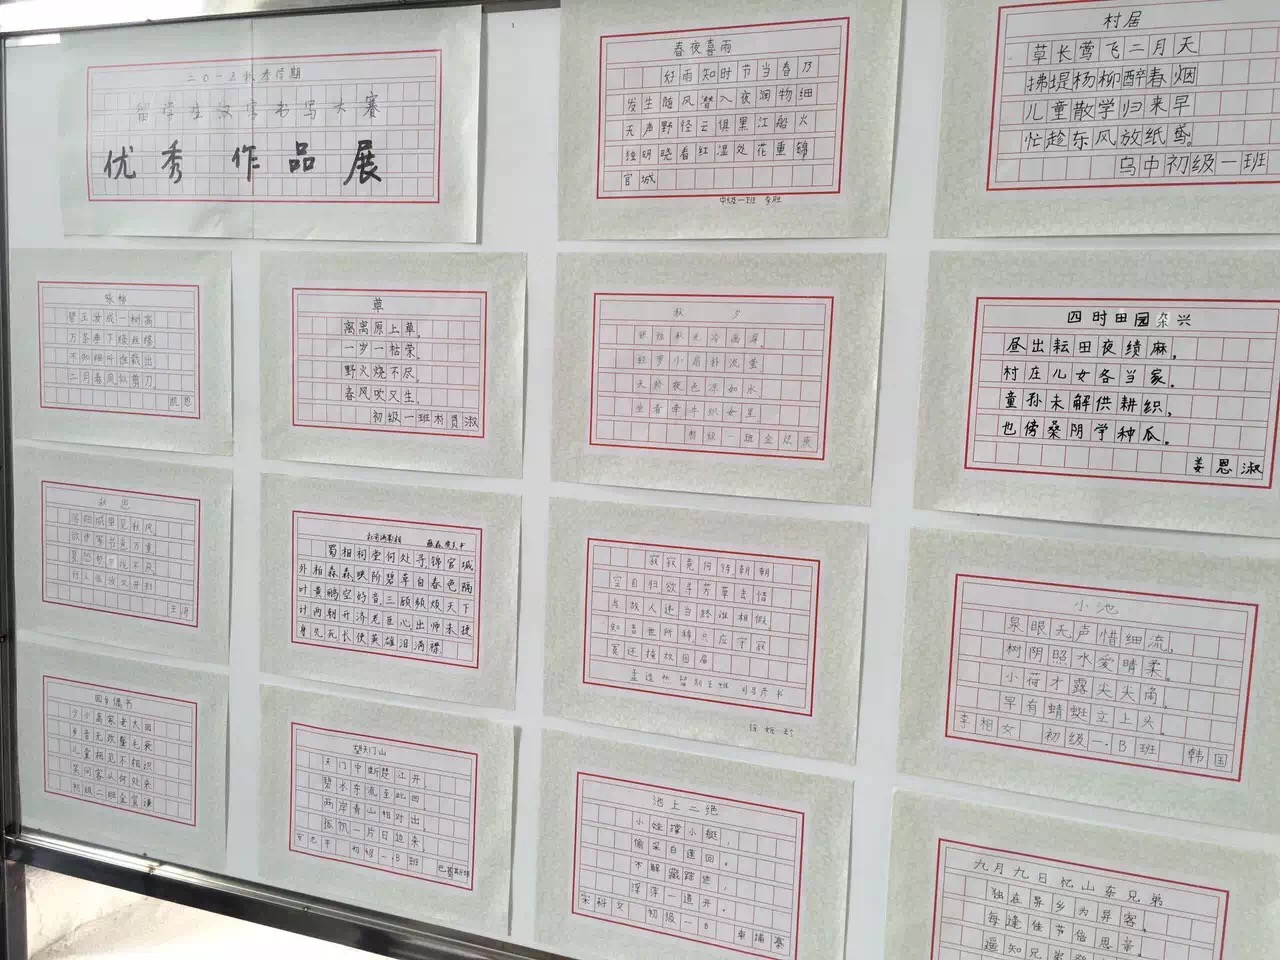 二〇一五秋季学期
留学生汉字书写大赛
优秀作品展
春夜喜雨
好雨知时节当春乃
发生随风潜入夜润物细
无声野径云俱黑江船火
独明晓看红湿处花重锦
官城
中级一班 李胜
村居
草长莺飞二月天
拂堤杨柳醉春烟
儿童散学归来早
忙趁东风放纸鸢。
乌中初级一班
咏柳
碧玉妆成一树高
万条垂下绿丝绦
不知细叶谁裁出
二月春风似剪刀。
凯恩
草
离离原上草。
一岁一枯荣。
野火烧不尽。
春风吹又生。
初级一班朴贞淑
秋夕
银烛秋光冷画屏
轻罗小扇扑流萤
天阶夜色凉如水
坐看牵牛织女星
初级一班金
四时田园杂兴
昼出耘田夜绩麻，
村庄儿女各当家。
童孙未解供耕织，
也傍桑阴学种瓜。
姜恩淑
秋思
洛阳城里见秋风
欲作家书意万重
复恐匆匆说不尽
行人临发又开封
王月
蜀相祠堂何处寻锦官城
外柏森森映阶碧草自春色隔
叶黄鹂空好音三顾频烦天下
计两朝开济老臣心出师未捷
身先死长使英雄泪满襟
寂寂竟何待朝朝
空自归欲寻芳草去惜
与故人违当路谁相假
知音世所稀只应守寂
寞还掩故园扉
孟浩然 留别王维
小池
泉眼无声惜细流，
树阴照水爱晴柔。
小荷才露尖尖角，
早有蜻蜓立上头。
李相女 初级一·B班 韩国
回乡偶书
少小离家老大回
乡音无改鬓毛衰
儿童相见不相识
笑问客从何处来
初级二班金
望天门山
天门中断楚江开，
碧水东流至此回
两岸青山相对出，
孤帆一片日边来。
初级一·B班
池上二绝
小娃撑小艇，
偷采白莲回。
不解藏踪迹，
浮萍一道开。
宋科文 初级一B 柬埔寨
九月九日忆山东兄弟
独在异乡为异客，
每逢佳节倍思亲。
遥知兄弟登